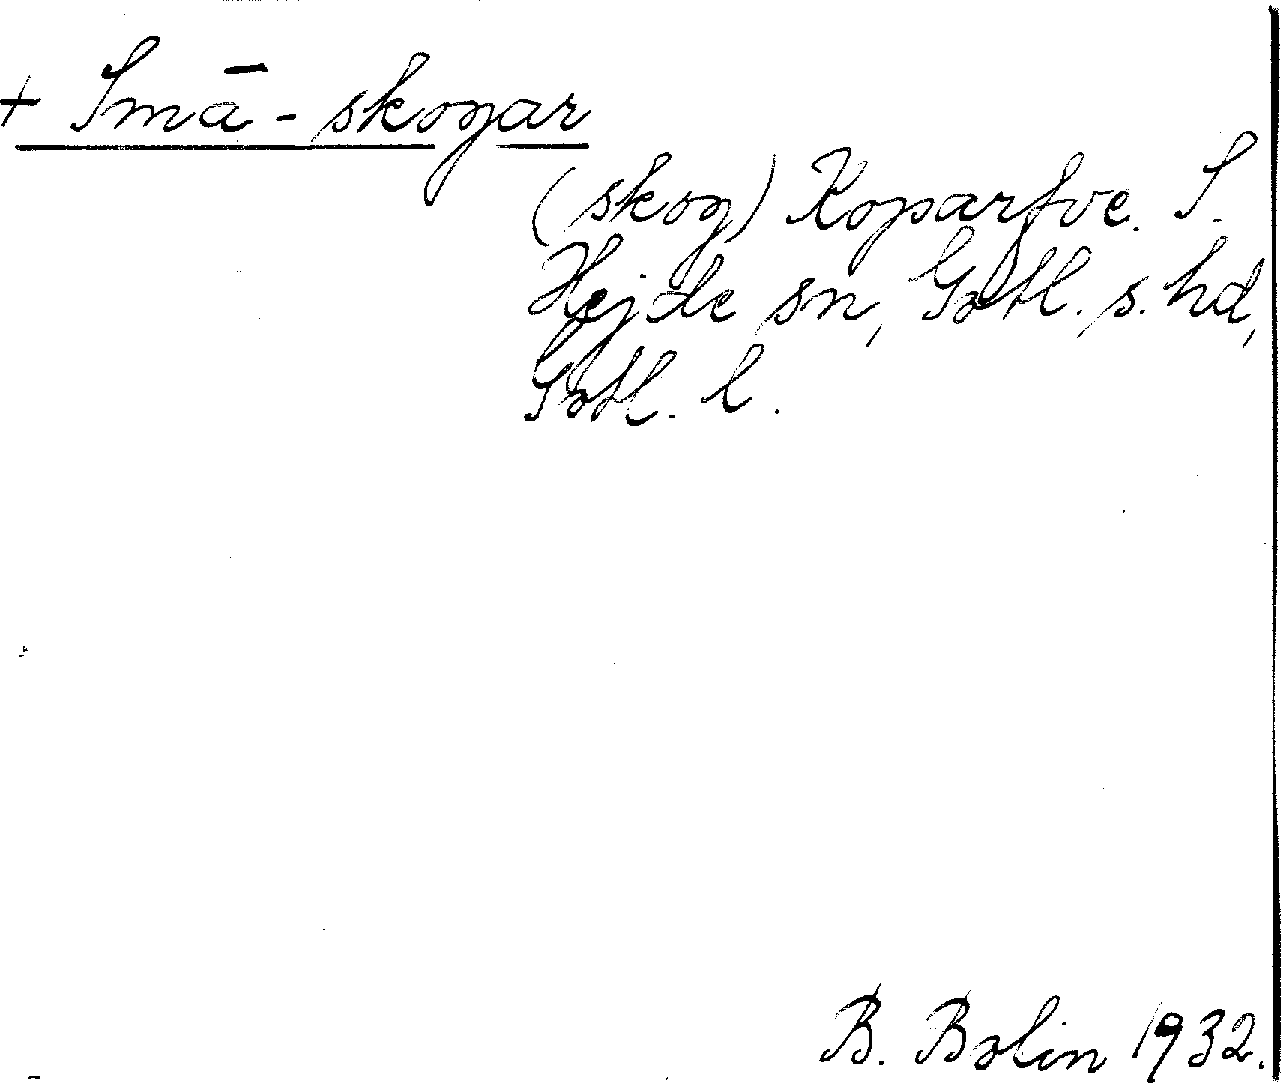 + Smā-skogar
(skog) Koparfve. S.
Hejde sn, Gotl. s. hd,
Gotl. l.
B. Bolin 1932.